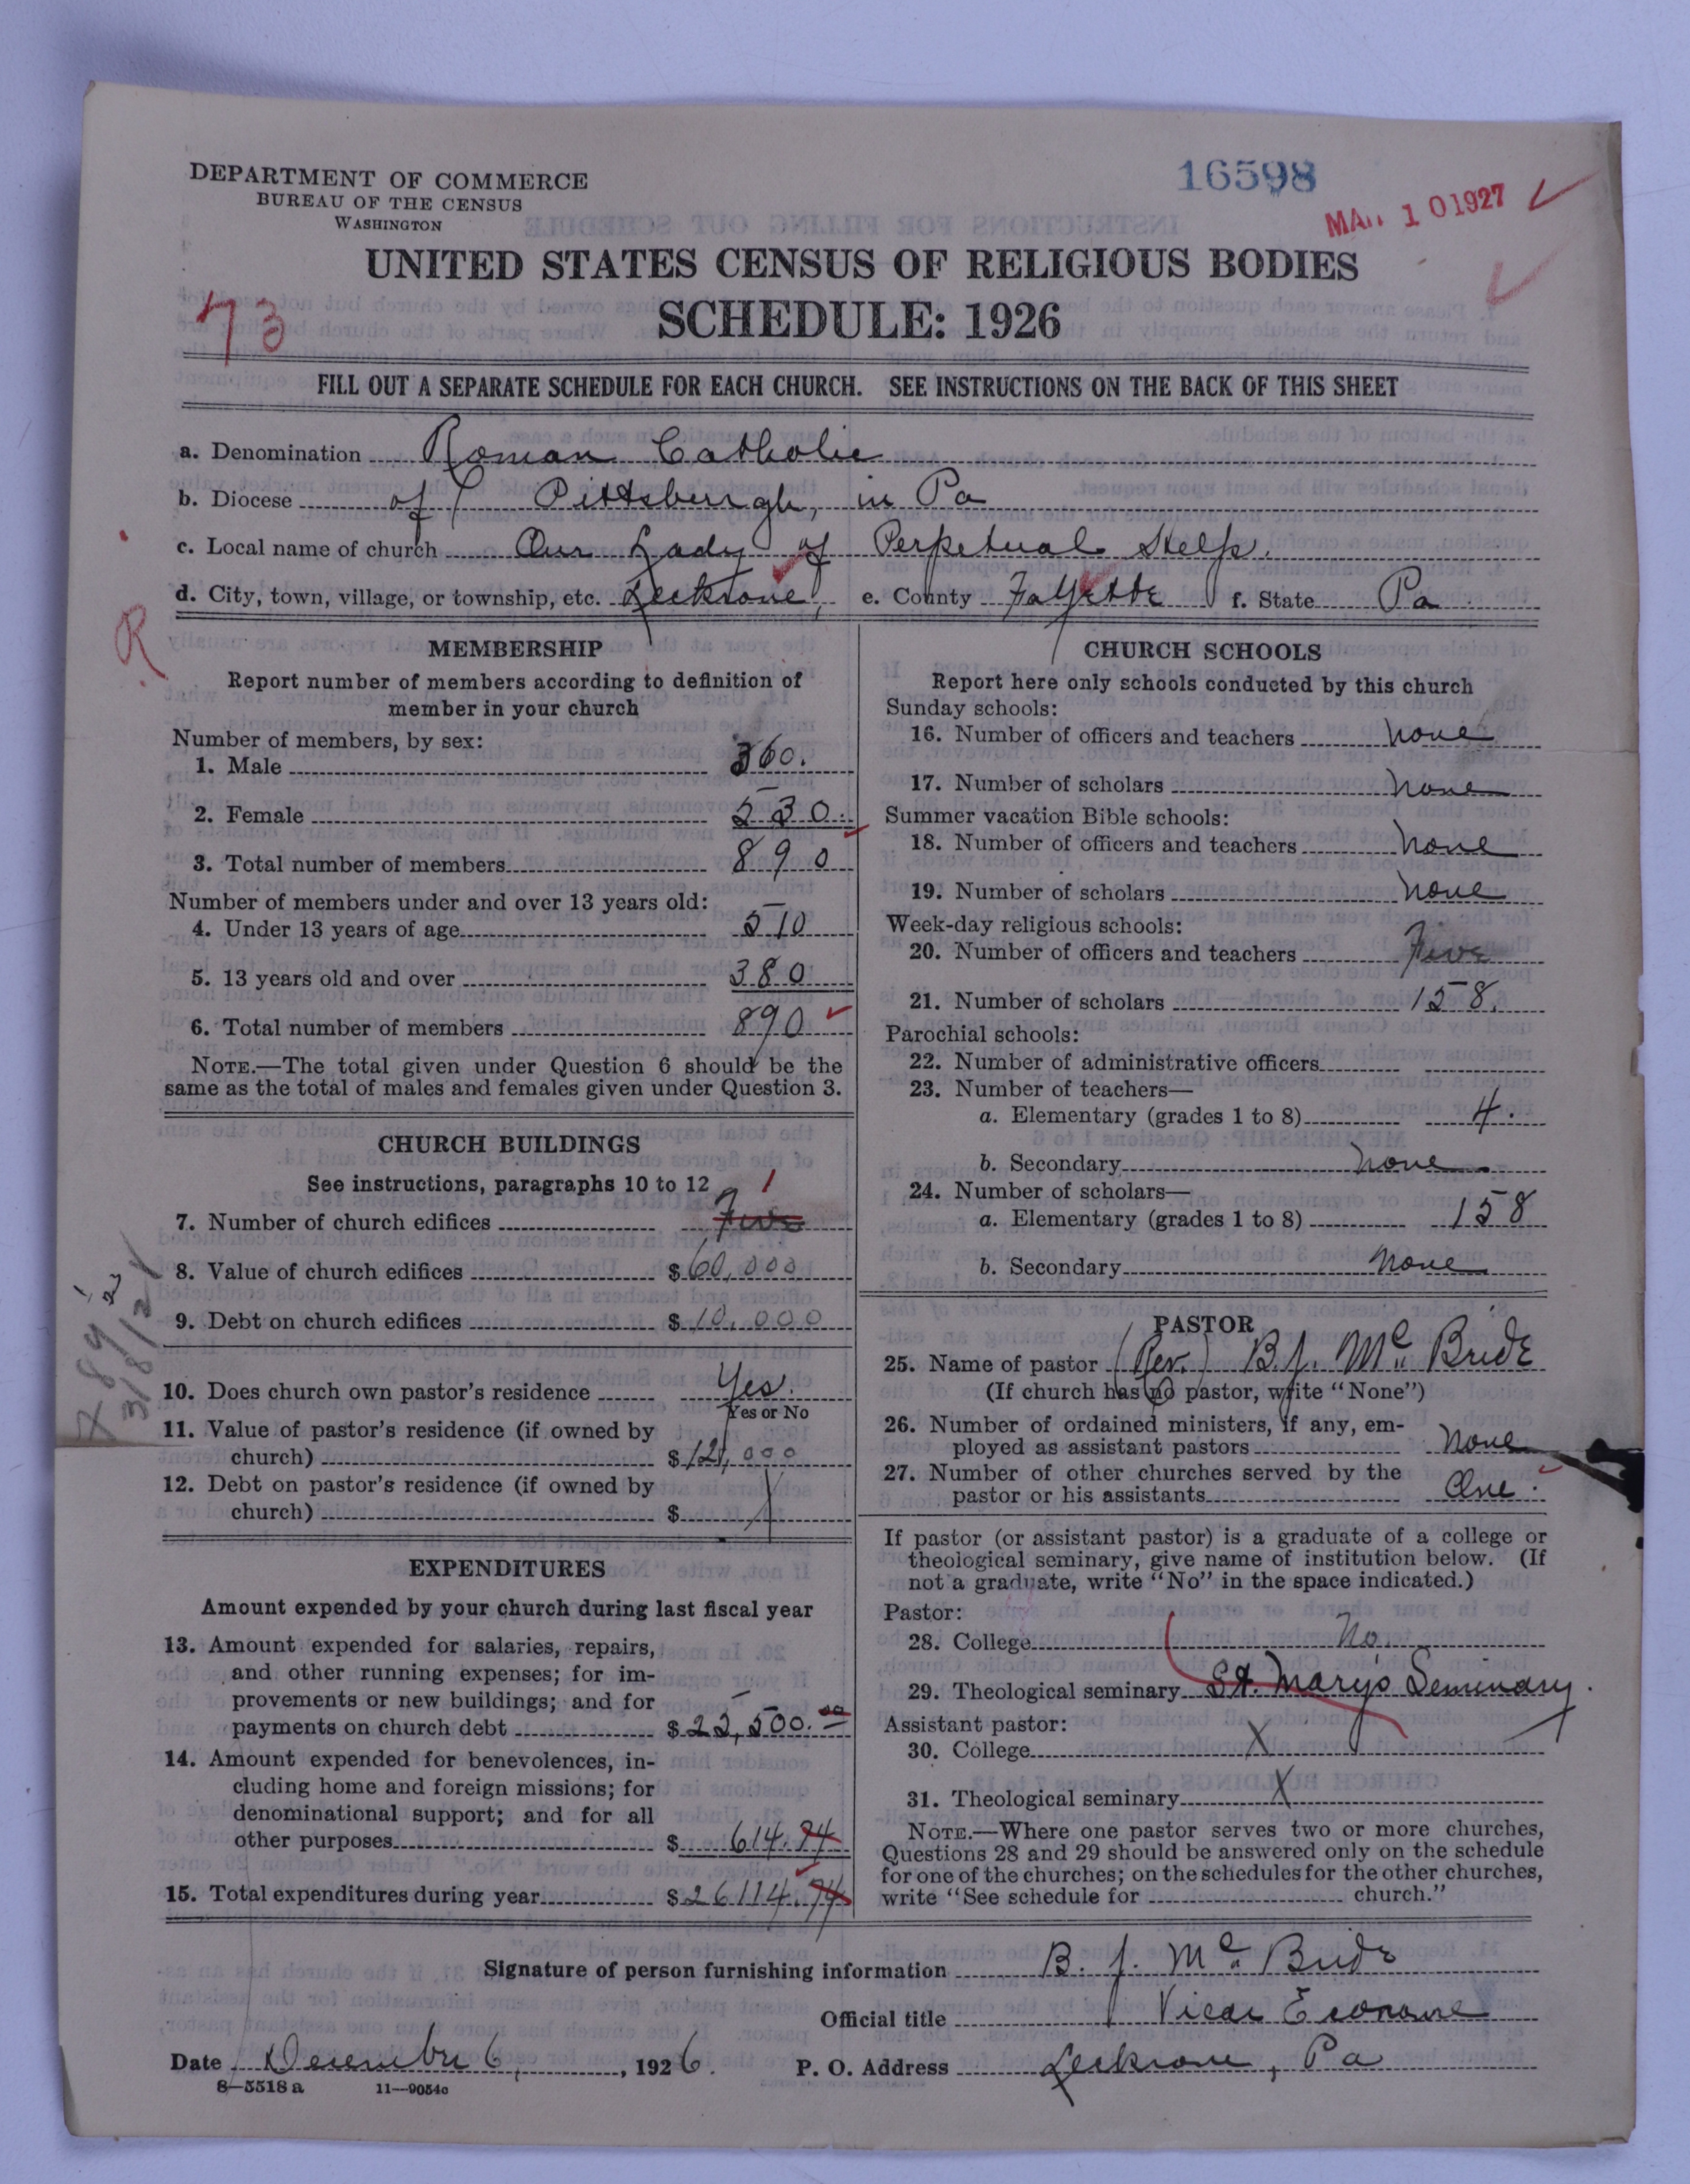 16598
MAR 10 1927
DEPARTMENT OF COMMERCE
BUREAU OF THE CENSUS
WASHINGTON
UNITED STATES CENSUS OF RELIGIOUS BODIES
SCHEDULE: 1926
73
FILL OUT A SEPARATE SCHEDULE FOR EACH CHURCH. SEE INSTRUCTIONS ON THE BACK OF THIS SHEET
a. Denomination Roman Catholic
b. Diocese of Pittsburgh, in Pa
c. Local name of church Our Lady of Perpetual Help.
d. City, town, village, or township, etc. Leckrone, e. County Fayette f. State Pa
R
MEMBERSHIP
Report number of members according to definition of
member in your church
Number of members, by sex:
1. Male 360.
2. Female 530
3. Total number of members 890
Number of members under and over 13 years old:
4. Under 13 years of age 510
5. 13 years old and over 380
6. Total number of members 890
NOTE.—The total given under Question 6 should be the
same as the total of males and females given under Question 3.
CHURCH BUILDINGS
See instructions, paragraphs 10 to 12
1
7. Number of church edifices Five
8. Value of church edifices $60,000
9. Debt on church edifices $10,000
10. Does church own pastor's residence Yes.
Yes or No
11. Value of pastor's residence (if owned by
church) $12,000
12. Debt on pastor's residence (if owned by
church) $
EXPENDITURES
Amount expended by your church during last fiscal year
13. Amount expended for salaries, repairs,
and other running expenses; for im-
provements or new buildings; and for
payments on church debt $25,500.00
14. Amount expended for benevolences, in-
cluding home and foreign missions; for
denominational support; and for all
other purposes $614.74
15. Total expenditures during year $26114.74
CHURCH SCHOOLS
Report here only schools conducted by this church
Sunday schools:
16. Number of officers and teachers none
17. Number of scholars none
Summer vacation Bible schools:
18. Number of officers and teachers none
19. Number of scholars none
Week-day religious schools:
20. Number of officers and teachers Five
21. Number of scholars 158.
Parochial schools:
22. Number of administrative officers
23. Number of teachers—
a. Elementary (grades 1 to 8) 4.
b. Secondary none
24. Number of scholars—
a. Elementary (grades 1 to 8) 158
b. Secondary none
PASTOR
25. Name of pastor (Rev.) B. J. McBride
(If church has no pastor, write "None")
26. Number of ordained ministers, if any, em-
ployed as assistant pastors none
27. Number of other churches served by the
pastor or his assistants One.
If pastor (or assistant pastor) is a graduate of a college or
theological seminary, give name of institution below. (If
not a graduate, write "No" in the space indicated.)
Pastor:
28. College No.
29. Theological seminary St. Mary's Seminary.
Assistant pastor:
30. College X
31. Theological seminary X
NOTE.—Where one pastor serves two or more churches,
Questions 28 and 29 should be answered only on the schedule
for one of the churches; on the schedules for the other churches,
write "See schedule for church."
Signature of person furnishing information B. J. McBride
Official title Vicar Econome
Date December 6, 1926. P. O. Address Leckrone, Pa
8—5518 a 11—9054c